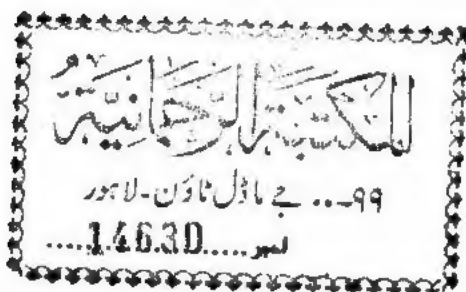 المکتبۃ الرحمانیۃ
۹۹... جے ماڈل ٹاؤن۔ لاہور
نمبر.....14630.....